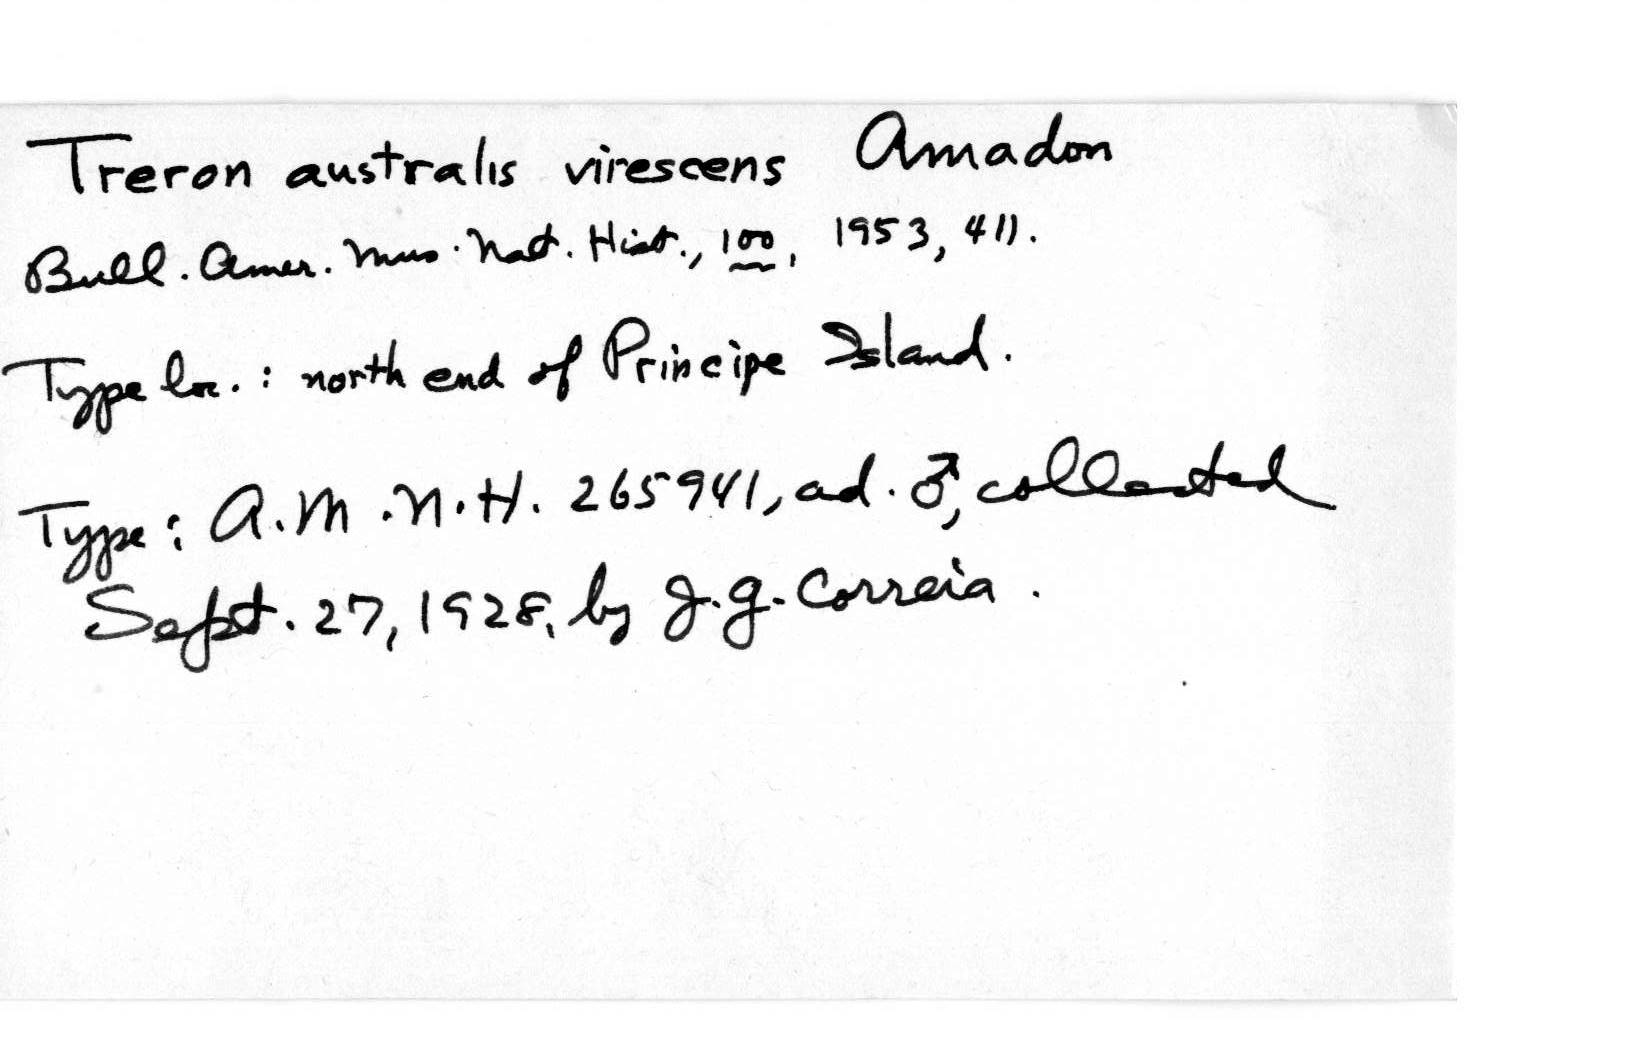 Treron australis virescens Amadon
Bull. Amer. Mus. Nat. Hist., 100, 1953, 411.
Type loc.: north end of Principe Island.
Type: A.M.N.H. 265941, ad. ♂, collected
Sept. 27, 1928, by J.G. Correia.